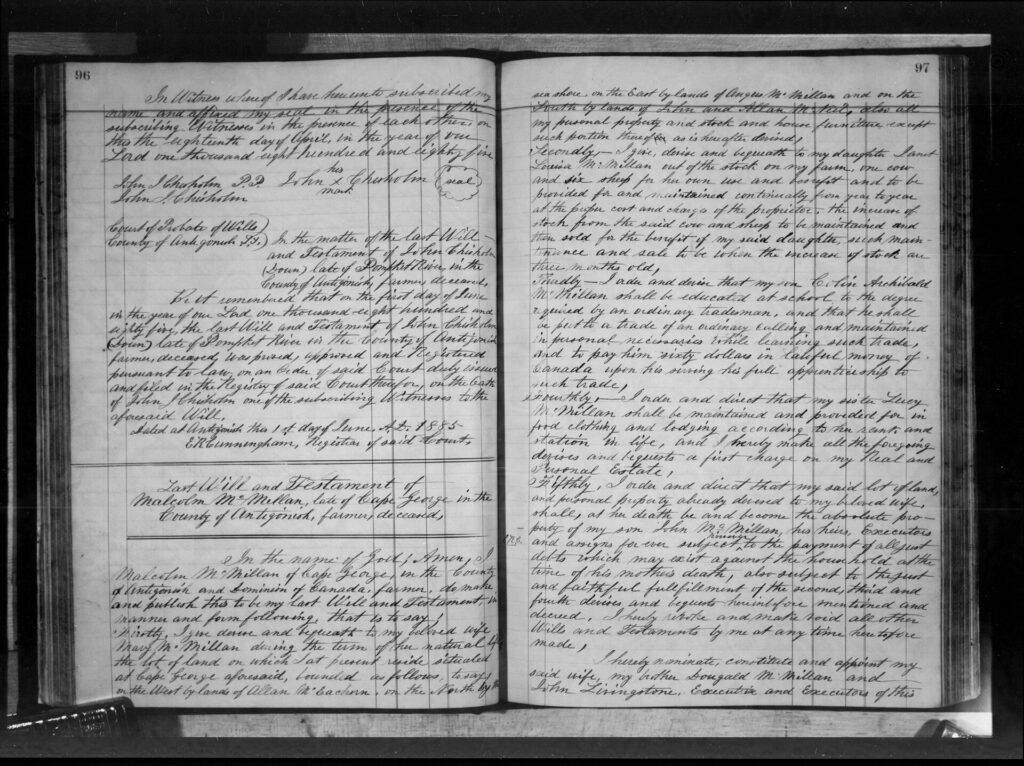 96
In Witness whereof I have hereunto subscribed my
name and affixed my seal in the presence of the
subscribing Witnesses in the presence of each other, on
this the Eighteenth day of April, in the year of our
Lord one thousand eight hundred and eighty five
his
John J Chisholm P.P. John x Chisholm (seal)
mark
John J. Chisholm
Court of Probate of Wills)
County of Antigonish SS.)
In the matter of the last Will
and Testament of John Chisholm
late of Pompket River, in the
County of Antigonish, farmer, deceased,
Be it remembered that on the first day of June
in the year of our Lord one thousand eight hundred and
eighty five, the last Will and Testament of John Chisholm
late of Pompket River in the County of Antigonish
farmer, deceased, was proved, approved and Registered
pursuant to law, on an order of said Court duly issued
and filed in the Registry of said Court therefor, on the oath
of John J Chisholm one of the subscribing Witnesses to the
aforesaid Will.
Dated at Antigonish this 1st day of June, A.D. 1885
Cunningham, Registrar of said Court.
Last Will and Testament of
Malcolm McMillan, late of Cape George in the
County of Antigonish, farmer, deceased,
In the name of God, Amen, I
Malcolm McMillan of Cape George, in the County
of Antigonish and Dominion of Canada, farmer, do make
and publish this to be my last Will and Testament, in
manner and form following, that is to say;
Firstly, I give devise and bequeath to my beloved wife
Mary McMillan during the term of her natural life
the lot of land on which I at present reside situated
at Cape George aforesaid, bounded as follows, to say,
on the West by lands of Allan McEachern, on the North by the
97
sea shore, on the East by lands of Angus McMillan and on the
South by lands of John and Allan McNeil, also all
my personal property and stock and house furniture except
such portion thereof as is hereafter devised,
Secondly, I give, devise and bequeath to my daughter Janet
Louisa McMillan out of the stock on my farm, one cow
and six sheep for her own use and benefit and to be
provided for and maintained continually from year to year
at the proper cost and charges of the proprietor, the increase of
stock from the said cow and sheep to be maintained and
then sold for the benefit of my said daughter, such main-
tenance and sale to be when the increase of stock are
three months old,
Thirdly - I order and devise that my son Colin Archibald
McMillan shall be educated at school to the degree
required by an ordinary tradesman, and that he shall
be put to a trade of an ordinary calling and maintained
in personal necessaries while learning such trade,
and to pay him sixty dollars in lawful money of
Canada upon his serving his full apprenticeship to
such trade,
Fourthly, - I order and direct that my sister Lucy
McMillan shall be maintained and provided for in
food clothing and lodging according to her rank and
station in life, and I hereby make all the foregoing
devises and bequests a first charge on my Real and
Personal Estate,
Fifthly, I order and direct that my said lot of land,
and personal property already devised to my beloved wife,
shall, at her death be and become the absolute pro-
perty of my son John McMillan, his heirs, Executors
and assigns for ever subject to the payment of all just
debts which may exist against the household at the
time of his mother's death, also subject to the just
and faithful fullfillment of the second, third and
fourth devises, and bequests hereinbefore mentioned and
decreed, I hereby revoke and make void all other
Wills and Testaments by me at any time heretofore
made,
I hereby nominate, constitute and appoint my
said wife, my brother Dougald McMillan and
John Livingstone, Executrix and Executors of this